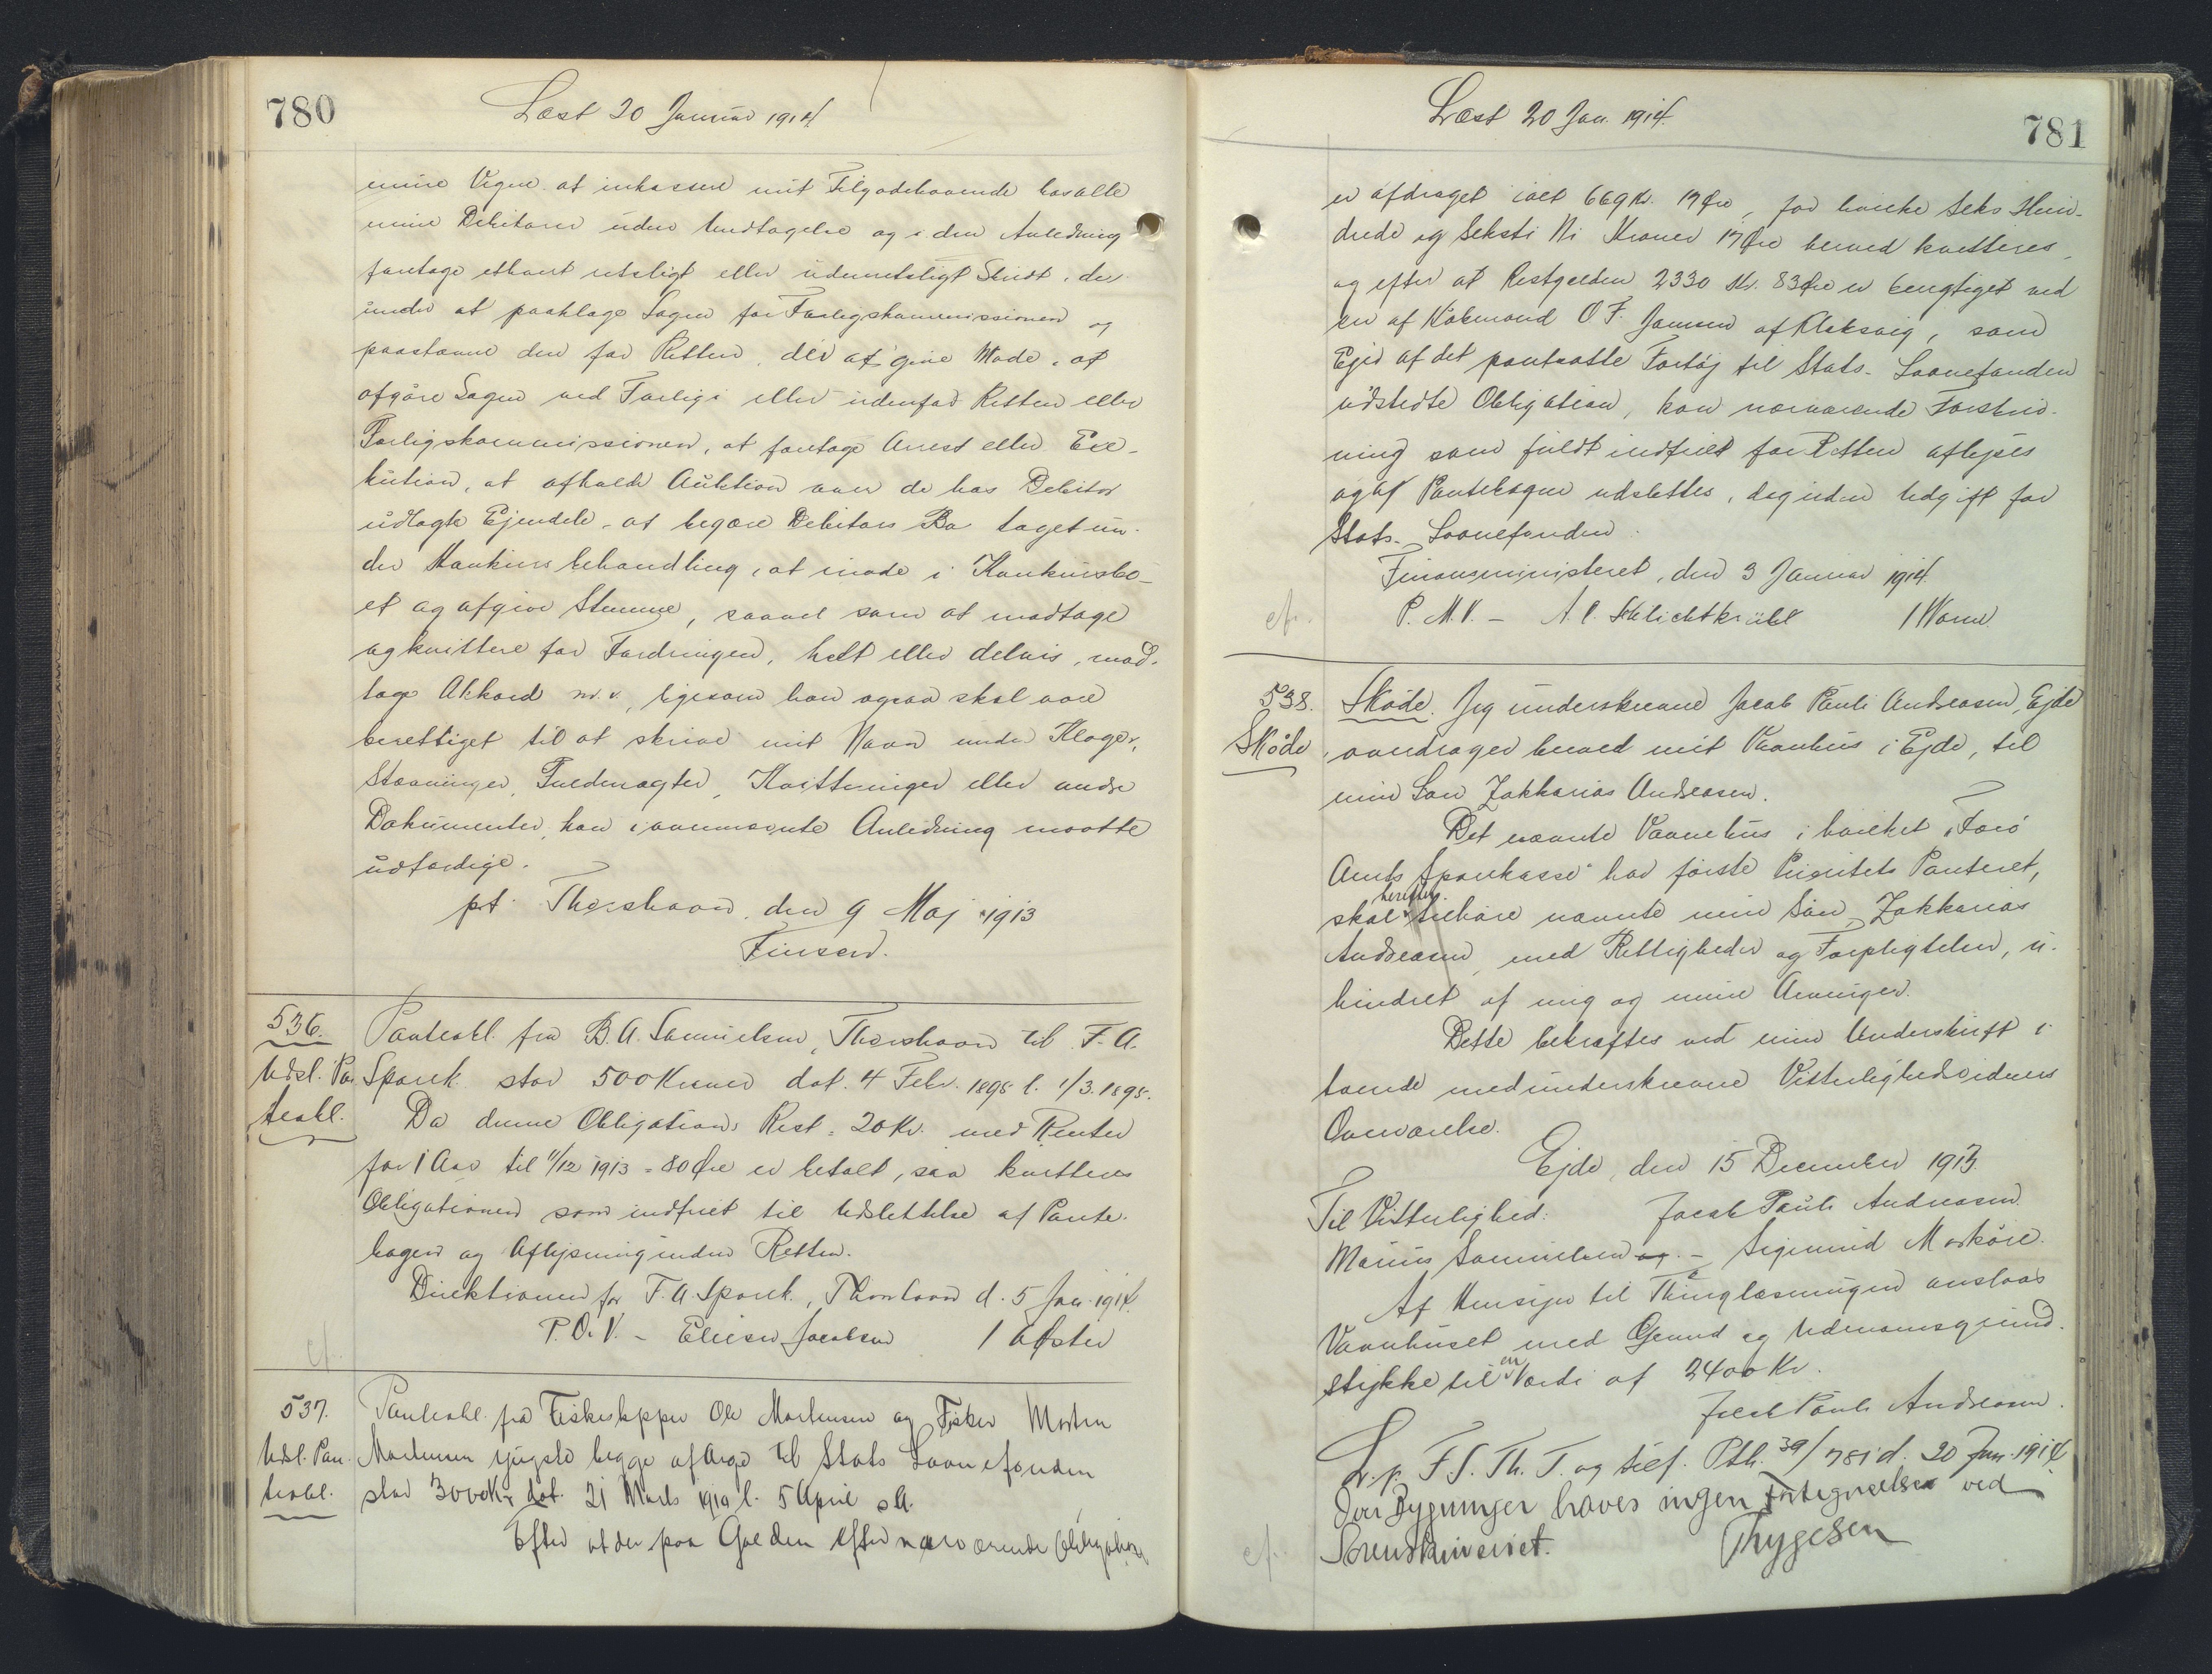 780
Læst 20 Januar 1914.
mine Vegne at inkassere mit Tilgodehavende hos alle
mine Debitorer uden Undtagelse og i den Anledning
foretage ethvert retsligt eller udenretsligt Skridt, der-
under at paaklage Sagen for Forligskommissionen og
paastævne den for Retten, der at give Møde, at
afgøre Sagen ved Forlig i eller udenfor Retten eller
Forligskommissionen, at foretage Arrest eller Exe-
kution, at afholde Auktion over de hos Debitor
udlagte Ejendele, at begære Debitors Bo taget un-
der Konkursbehandling, at møde i Konkursbo-
et og afgive Stemme, saavel som at modtage
og kvittere for Fordringen, helt eller delvis, mod-
tage Akkord m. v., ligesom han ogsaa skal være
berettiget til at skrive mit Navn under Klager,
Stævninger, Fuldmagter, Kvitteringer eller andre
Dokumenter, han i ovennævnte Anledning maatte
udfærdige.
pt. Thorshavn, den 9 Maj 1913
Finsen.
536.
Udsl. Pan
teobl.
Panteobl. fra B. A. Samuelsen, Thorshavn til F. A.
Spark. stor 500 Kroner dat. 4 Febr. 1898 l. 1/3. 1898.
Da denne Obligations Rest = 20 Kr. med Renter
for 1 Aar til 11/12 1913 = 80 Øre er betalt, saa kvitteres
Obligationen som indfriet til Udslettelse af Pante-
bogen og Aflysning inden Retten.
Direktionen for F. A. Spark., Thorshavn d. 5 Jan. 1914.
P. D. V. - Elieser Jacobsen / Øster
cf.
537.
Udsl. Pan
teobl.
Panteobl. fra Fiskeskipper Ole Mortensen og Fisker Morten
Mortensen yngste begge af Æge til Stats Laanefonden
stor 3000 Kr dat. 21 Marts 1910 l. 5 April s. A.
Efter at der paa Gælden efter nærværende Obligation
781
Læst 20 Jan. 1914.
er afdraget ialt 669 Kr. 17 Øre, for hvilke Seks Hun-
drede og Seksti Ni Kroner 17 Øre herved kvitteres,
og efter at Restgælden 2330 Kr. 83 Øre er berigtiget ved
en af Købmand O. F. Joensen af Klaksvig, som
Ejer af det pantsatte Fartøj til Stats-Laanefonden
udstedte Obligation, kan nærværende Forskriv-
ning som fuldt indfriet for Retten aflyses
og af Pantebogen udslettes, dog uden Udgift for
Stats-Laanefonden.
Finansministeriet, den 3 Januar 1914.
P. M. V. - A. C. Schlichtkrüll / Worm
cf.
538.
Skøde
Skøde. Jeg underskrevne Jacob Pauli Andreasen, Ejde
overdrager herved mit Vaanhus i Ejde, til
min Søn Zakkarias Andreasen.
Det nævnte Vaanehus i hvilket "Færø
Amts Sparkasse" har første Prioritets Panteret,
skal herefter tilhøre nævnte min Søn Zakkarias
Andreasen, med Rettigheder og Forpligtelser, u-
hindret af mig og mine Arvinger.
Dette bekræftes ved min Underskrift i
tvende medunderskrevne Vitterlighedsvidners
Overværelse.
Ejde, den 15 December 1913.
Til Vitterlighed: Jacob Pauli Andreasen.
Marius Samuelsen og - Sigmund Mørköre.
Af Hensyn til Thinglæsningen anslaas
Vaanhuset med Grund og Udenomsgrund-
stykke til en Værdi af 2400 Kr.
Jacob Pauli Andreasen.
L. p. F. S. Th. T. og tilf. Ptb. 39/781 d. 20 Jan. 1914.
Over Bygninger haves ingen Fortegnelser ved
Sorenskriveriet. Thygesen
cf.